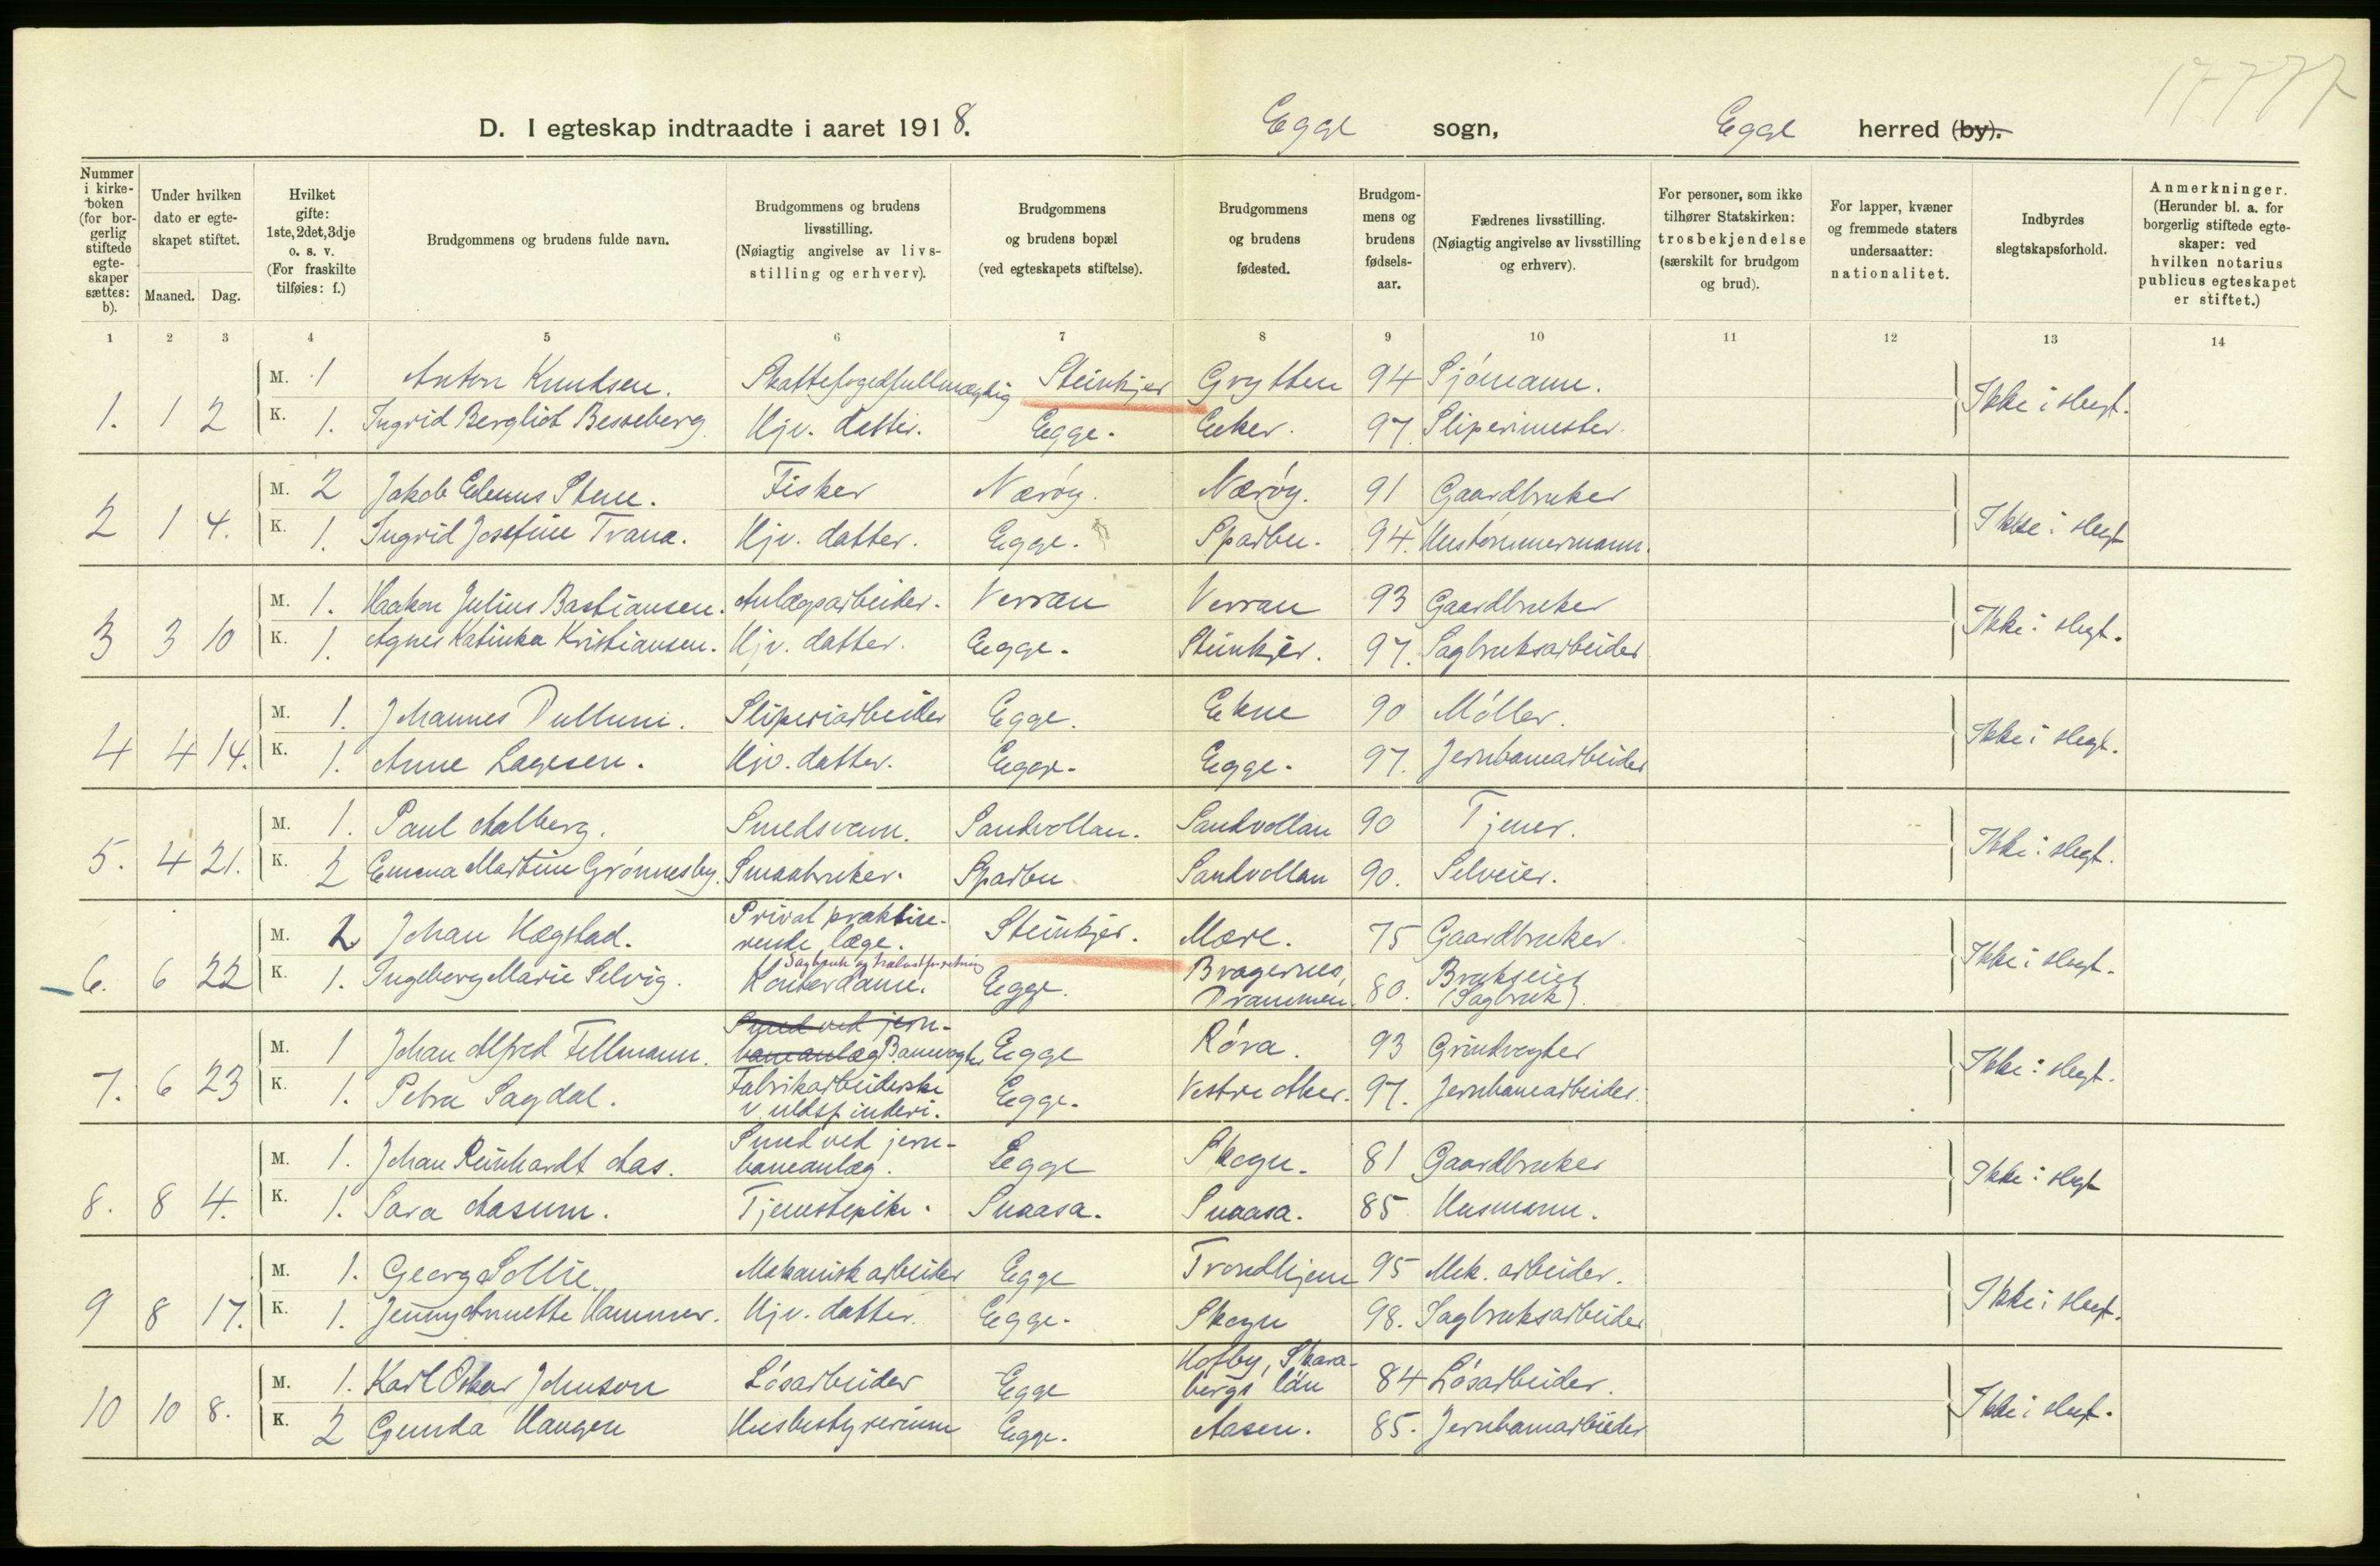 17777
D. I egteskap indtraadte i aaret 1918. Egge sogn, Egge herred (by).
Nummer i kirkeboken (for borgerlig stiftede egteskaper sættes: b).
Under hvilken dato er egteskapet stiftet.
Maaned. Dag.
Hvilket gifte: 1ste, 2det, 3dje o. s. v. (For fraskilte tilføies: f.)
Brudgommens og brudens fulde navn.
Brudgommens og brudens livsstilling. (Nøiagtig angivelse av livsstilling og erhverv).
Brudgommens og brudens bopæl (ved egteskapets stiftelse).
Brudgommens og brudens fødested.
Brudgommens og brudens fødselsaar.
Fædrenes livsstilling. (Nøiagtig angivelse av livsstilling og erhverv).
For personer, som ikke tilhører Statskirken: trosbekjendelse (særskilt for brudgom og brud).
For lapper, kvæner og fremmede staters undersaatter: nationalitet.
Indbyrdes slegtskapsforhold.
Anmerkninger. (Herunder bl. a. for borgerlig stiftede egteskaper: ved hvilken notarius publicus egteskapet er stiftet.)
1 2 3 4 5 6 7 8 9 10 11 12 13 14
M. 1 Anton Knudsen. Skattefogedfullmægtig Steinkjer Grytten 94 Sjómann.
1. 1 2 K. 1. Ingrid Bergliot Besseberg. Hjv. datter. Egge. Eker. 97. Sliperimester. Ikke i slegt.
M. 2 Jakob Edenus Stene. Fisker Nærøy. Nærøy. 91 Gaardbruker
2 1 4. K. 1. Ingrid Josefine Trana. Hjv. datter. Egge. Sparbu. 94. Hustømmermann. Ikke i slegt
M. 1. Haakon Julius Bastiansen. Anlægsarbeider. Verran Verran 93 Gaardbruker
3 3 10 K. 1. Agnes Katinka Kristiansen. Hjv. datter. Egge. Steinkjer. 97. Sagbruksarbeider Ikke i slegt.
M. 1. Johannes Dullum. Sliperiarbeider Egge. Ekne 90 Móller.
4 4 14. K. 1. Anne Lagesen. Hjv. datter. Egge. Egge. 97. Jernbanearbeider Ikke i slegt.
M. 1. Paul Aalberg. Smedsvenn. Sandvollan. Sandvollan 90 Tjener.
5. 4 21. K. 2 Emma Martine Grónnesby. Smaabruker. Sparbu Sandvollan 90. Selveier. Ikke i slegt.
M. 2 Johan Hægstad. Privat praktiserende læge. Steinkjer. Mære. 75 Gaardbruker.
6. 6 22 K. 1. Ingeborg Marie Selvig. Kontordame. Sagbruk og trælastforretning Egge. Bragernes, Drammen. 80. Brukseier (Sagbruk). Ikke i slegt.
M. 1 Johan Alfred Fellmann. Smed ved jernbaneanlæg Banevogter Egge Róra. 93 Grindvogter
7. 6 23 K. 1. Petra Sagdal. Fabrikarbeiderske v. uldspinderi. Egge. Vestre Aker. 97. Jernbanearbeider. Ikke i slegt.
M. 1. Johan Reinhardt Aas. Smed ved jernbaneanlæg. Egge Skogn. 81 Gaardbruker
8. 8 4. K. 1. Sara Aasum. Tjenestepike. Snaasa. Snaasa. 85 Husmann. Ikke i slegt
M. 1. Georg Sollie. Mekanisk arbeider Egge Trondhjem 95 Mek. arbeider.
9 8 17. K. 1. Jenny Annette Hammer. Hjv. datter. Egge. Skogn 98. Sagbruksarbeider Ikke i slegt.
M. 1. Karl Oskar Johnson Lósarbeider Egge Hofby, Skarabergs län 84 Lósarbeider.
10 10 8. K. 2 Gunda Haugen Husbestyrerinne Egge. Aasen. 85. Jernbanearbeider Ikke i slegt.